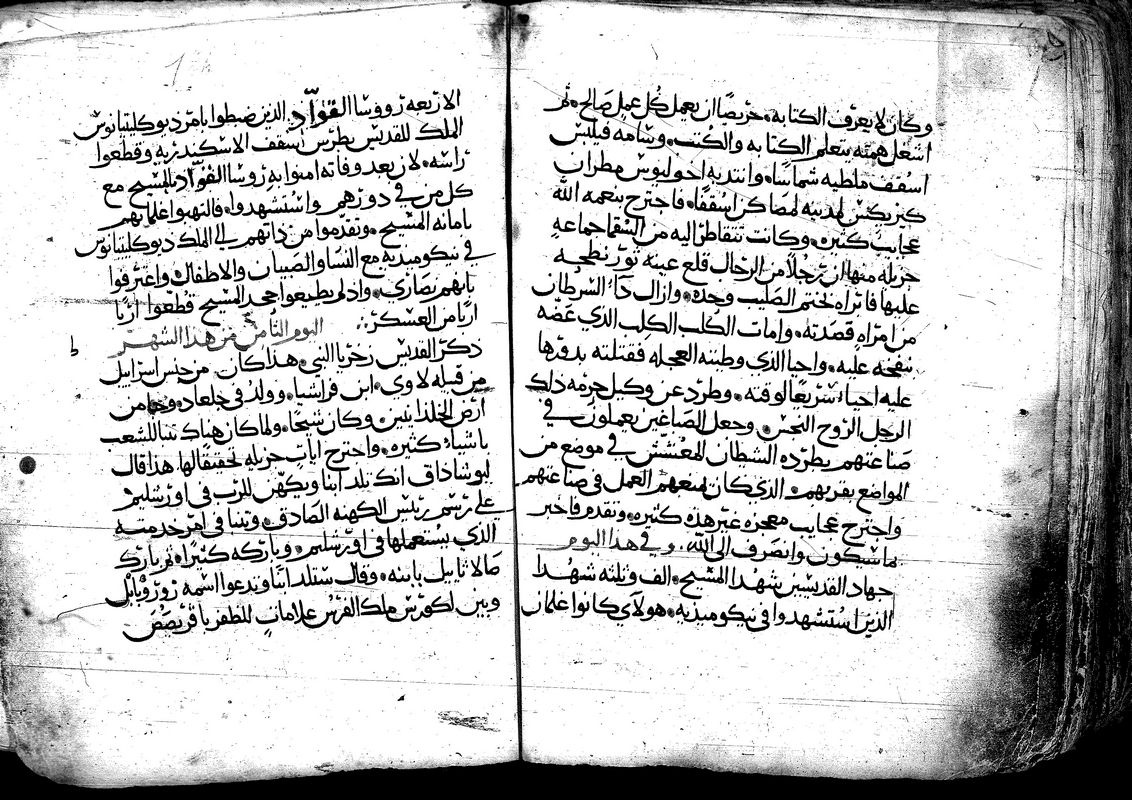 وكان لا يعرف الكتابه، حريصًا ان يعمل كُل عملٍ صَالح، ثم
اشغل همته بتعلم الكتابه والكُتب، وشامه فيلبس
اسقف ملطيه شماسًا، وانتدبه احوليوس مطران
كيزيكس لمدينه لمصاكن اسقفًا، فاجترح بنعمه الله
عجايب كثيره، وكانت تتقاطر اليه من السُقما جماعه
جزيله منها ان رجُلاً من الرجال قلع عينه ثور نطحه
عليها فابراه بختم الصليب وحده، وازال دآ السرطان
من امراه قصدته، وامات الكَلب الكلِب الذي عضّه
بنفحه عليه، واحيا الذي وطيته العجله فقتلته بدورها
عليه احياءً سريعًا لوقته، وطرد عن وكيل حرمه ذلك
الرجل الروح النجس، وجعل الصَاغين يعملون في
صناعتهم بطرده الشيطان المُعشّش في موضع من
المواضع بقربهم، الذي كان يمنعهم العمل في صناعتهم
واجترح عجايب معجزه غير هذه كثيره، وتقدم فاخبر
بما سيكون وانصرف الى الله. وفي هذا اليوم
جهاد القديسين شهدا المسيح، الف وثلثه شهدا
الذين استشهدوا في نيكوميديه، هولآي كانوا غلمان
الاربعه رووسا القوّاد الذين ضبطوا بامر ديوكليتيانوس
الملك للقديس بطرس اسقف الاسكندريه وقطعوا
راسه، لان بعد وفاته امنوا به روسا القوّاد بالمسيح مع
كل من في دورهم واستشهدوا، فالتهبوا غلمانهم
بامانه المسيح، وتقدّموا من ذاتهم الى الملك ديوكليتيانوس
في نيكوميديه مع النسا والصبيان والاطفال واعترفوا
بانهم نصارى، واذ لم يطيعوا جحد المسيح قُطعوا اربًا
اربًا من العسكر. اليوم الثامن من هذا الشهر
ذكر القديس زخريا النبي، هذا كان من جنس اسرايل
من قبيله لاوي، ابن فراشيا، وولد في جلعاد، وجا من
ارض الخلدانيين وكان شيخًا، ولما كان هناك تنبا للشعب
باشياء كثيره، واجترح ايات جزيله تحقيقًا لها هذا قال
ليوشاداق انك تلد ابنا ويكهّن للرب في اورشليم
على رسم رئيس الكهنه الصادق، وتنبا في اخر خدمته
الذي يستعملها في اورشليم، وباركه كثيرا، ثم بارك
صالاثاييل بابنه، وقال ستلد ابنًا وتدعوا اسمه زوروبابل
وبين لكورش ملك الفرس علامات للظفر باقريصُصُ